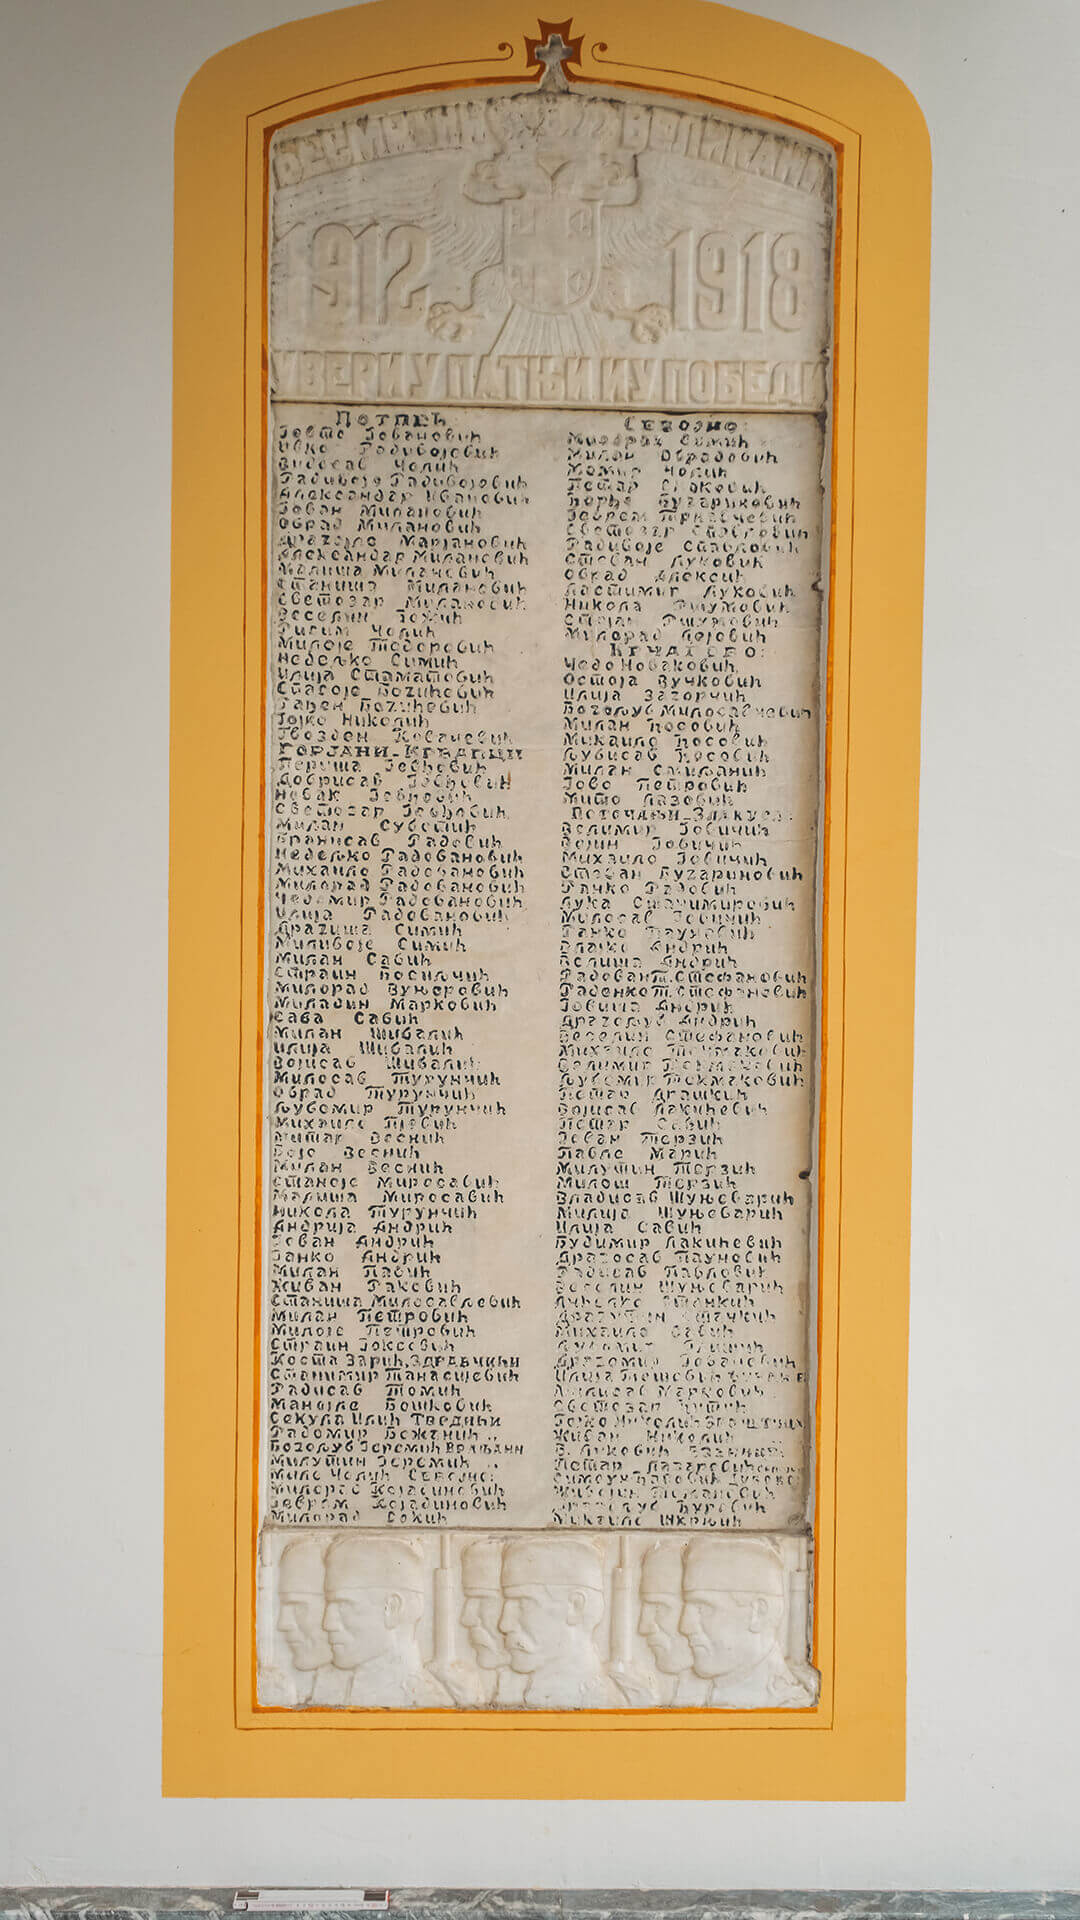 БЕСМРТНИ ВЕЛИКАНИ
1912 1918
У ВЕРИ У ПАТЊИ И У ПОБЕДИ
Потпећ
Јевто Јовановић
Ивко Радивојевић
Видосав Чолић
Радивоје Радивојовић
Александар Ивановић
Јован Милановић
Обрад Милановић
Драгојло Марјановић
Александар Милановић
Малиша Милановић
Станиша Милановић
Светозар Милановић
Веселин Божић
Рисим Чолић
Милоје Тодоровић
Недељко Симић
Илија Стаматовић
Спасоје Богићевић
Гаврен Богићевић
Јојко Николић
Гвозден Ковачевић
ГОРЈАНИ-КРВАВЦИ
Перуша Јевђовић
Добрисав Јевђовић
Новак Јевђовић
Светозар Јевђовић
Милан Суботић
Бранисав Радовић
Недељко Радовановић
Михаило Радовановић
Милорад Радовановић
Чедомир Радовановић
Илија Радовановић
Драгиша Симић
Миливоје Симић
Милан Савић
Страин Босиљчић
Милорад Вуњеровић
Миладин Марковић
Сава Савић
Милан Шибалић
Илија Шибалић
Војисав Шибалић
Милосав Турунчић
Обрад Турунчић
Љубомир Турунчић
Михаило
Митар Веснић
Боје Веснић
Милан Веснић
Станоје Миросавић
Малиша Миросавић
Никола Турунчић
Андрија Андрић
Јован Андрић
Јанко Андрић
Милан Павић
Живан Раковић
Станиша Милосављевић
Милан Петровић
Милоје Петровић
Страин Јоксовић
Коста Зарић, ЗДРАВЧИЋИ
Станимир Танасијевић
Радисав Томић
Манојле Бошковић
Секула Илић Твеdњи
Радомир Божанић „
Богољуб Јеремић Врањани
Милутин Јеремић „
Миле Чолић Севојно:
Милорад Којадиновић
Јеврем Којадиновић
Милорад Сокић
Севојно:
Милорад Симић
Милан Обрадовић
Момир Чолић
Петар
Ђорђе Бугариновић
Јеврем Трнавчевић
Светозар Стевловић
Радивоје Стевловић
Стеван Луковић
Обрад Алексић
Ластимир Луковић
Никола Ршумовић
Стојан Ршумовић
Милорад Којовић
КРЧАГОВО:
Чедо Новаковић
Остоја Вучковић
Илија Загорчић
Богољуб Милосавчевић
Милан Ћосовић
Михаило Ћосовић
Љубисав Ћосовић
Милан Смиљанић
Јово Петровић
Мито Лазовић
Поточањи-Злакуса:
Велимир Јовичић
Војин Јовичић
Михаило Јовичић
Стеван Бугариновић
Ранко Радовић
Лука Стачимировић
Милосав Јовичић
Ранко Пауновић
Влајко Андрић
Велиша Андрић
Радован Т. Стефановић
Раденко Т. Стефановић
Јовиша Андрић
Драгољуб Андрић
Веселин Стефановић
Михаило Токмаковић
Велимир Токмаковић
Љубомир Токмаковић
Петар Драшкић
Војисав Лакићевић
Петар Савић
Јован Терзић
Павле Марић
Милутин Терзић
Милош Терзић
Владисав Шуњеварић
Милија Шуњеварић
Илија Савић
Будимир Лакићевић
Драгосав Пауновић
Радисав Павловић
Веселин Шуњеварић
Анђелко Станкић
Драгутин Стачкић
Михаило Савић
Љубомир
Драгомир Јовановић
Илија Тошовић
Милисав Марковић
Светозар
Гојко Николић
Живан Николић
В. Луковић
Петар Лазаревић
Симеун Радовић
Живојин Томановић
Драгољуб Ђуровић
Михаило Шкрњић